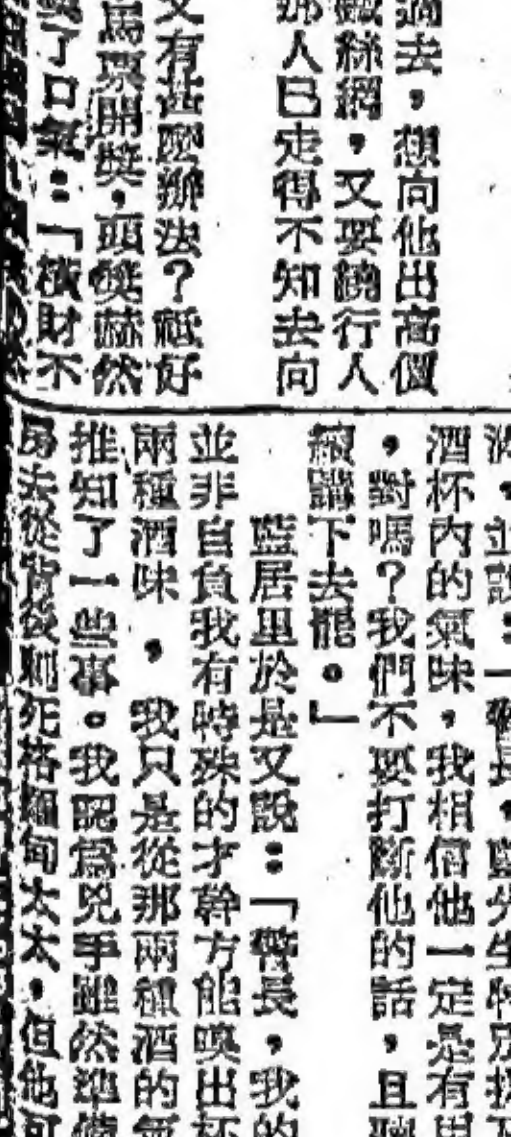 過去，想向他出高價
絲網，又要繞行人
那人已走得不知去向
又有甚麼辦法？祗好
馬票開獎，頭獎赫然
了口氣：「橫財不
，並說：「警長，藍先生特別
酒杯內的氣味，我相信他一定是有
，對嗎？我們不要打斷他的話，且
續講下去罷。」
藍居里於是又說：「警長，我的
並非自負我有特殊的才幹方能嗅出杯
兩種酒味，我只是從那兩種酒的氣
推知了一些事。我認爲兇手雖然準備
房去從背後刺死格緬甸太太，但他可